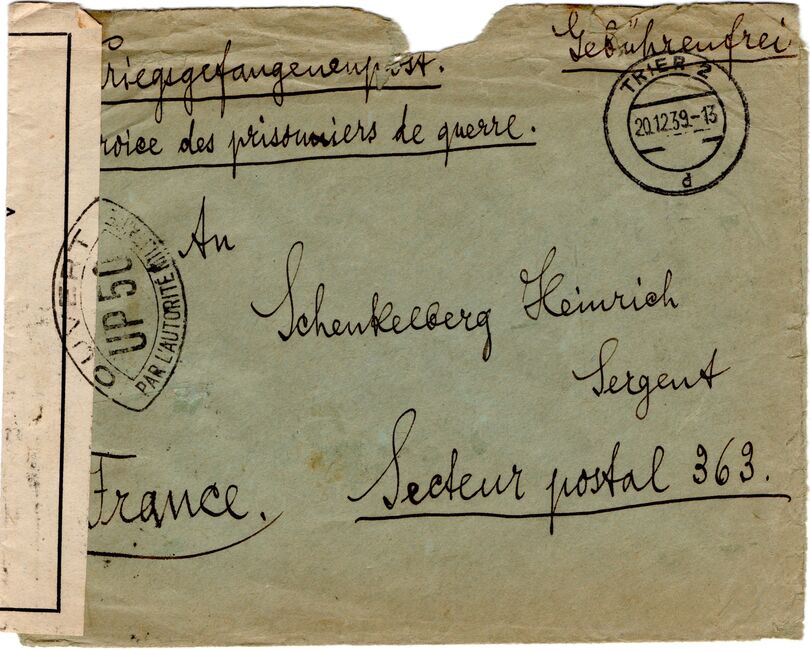 Gebührenfrei
riegsgefangenenpost.
TRIER 2
20.12.39.-13
d
rvice des prisonniers de guerre.
An
OUVERT
UP 50
PAR L'AUTORITÉ
Schenkelberg Heinrich
Sergent
Secteur postal 363.
France.